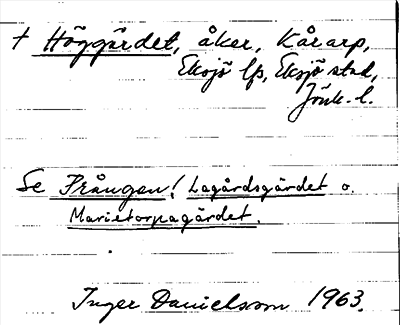 + Höggärdet, åker, Kårarp,
Eksjö lfs, Eksjö stad,
Jönk. l.
Se Prången! Lagårdsgärdet o.
Marietorpagärdet.
Inger Danielsson 1963.